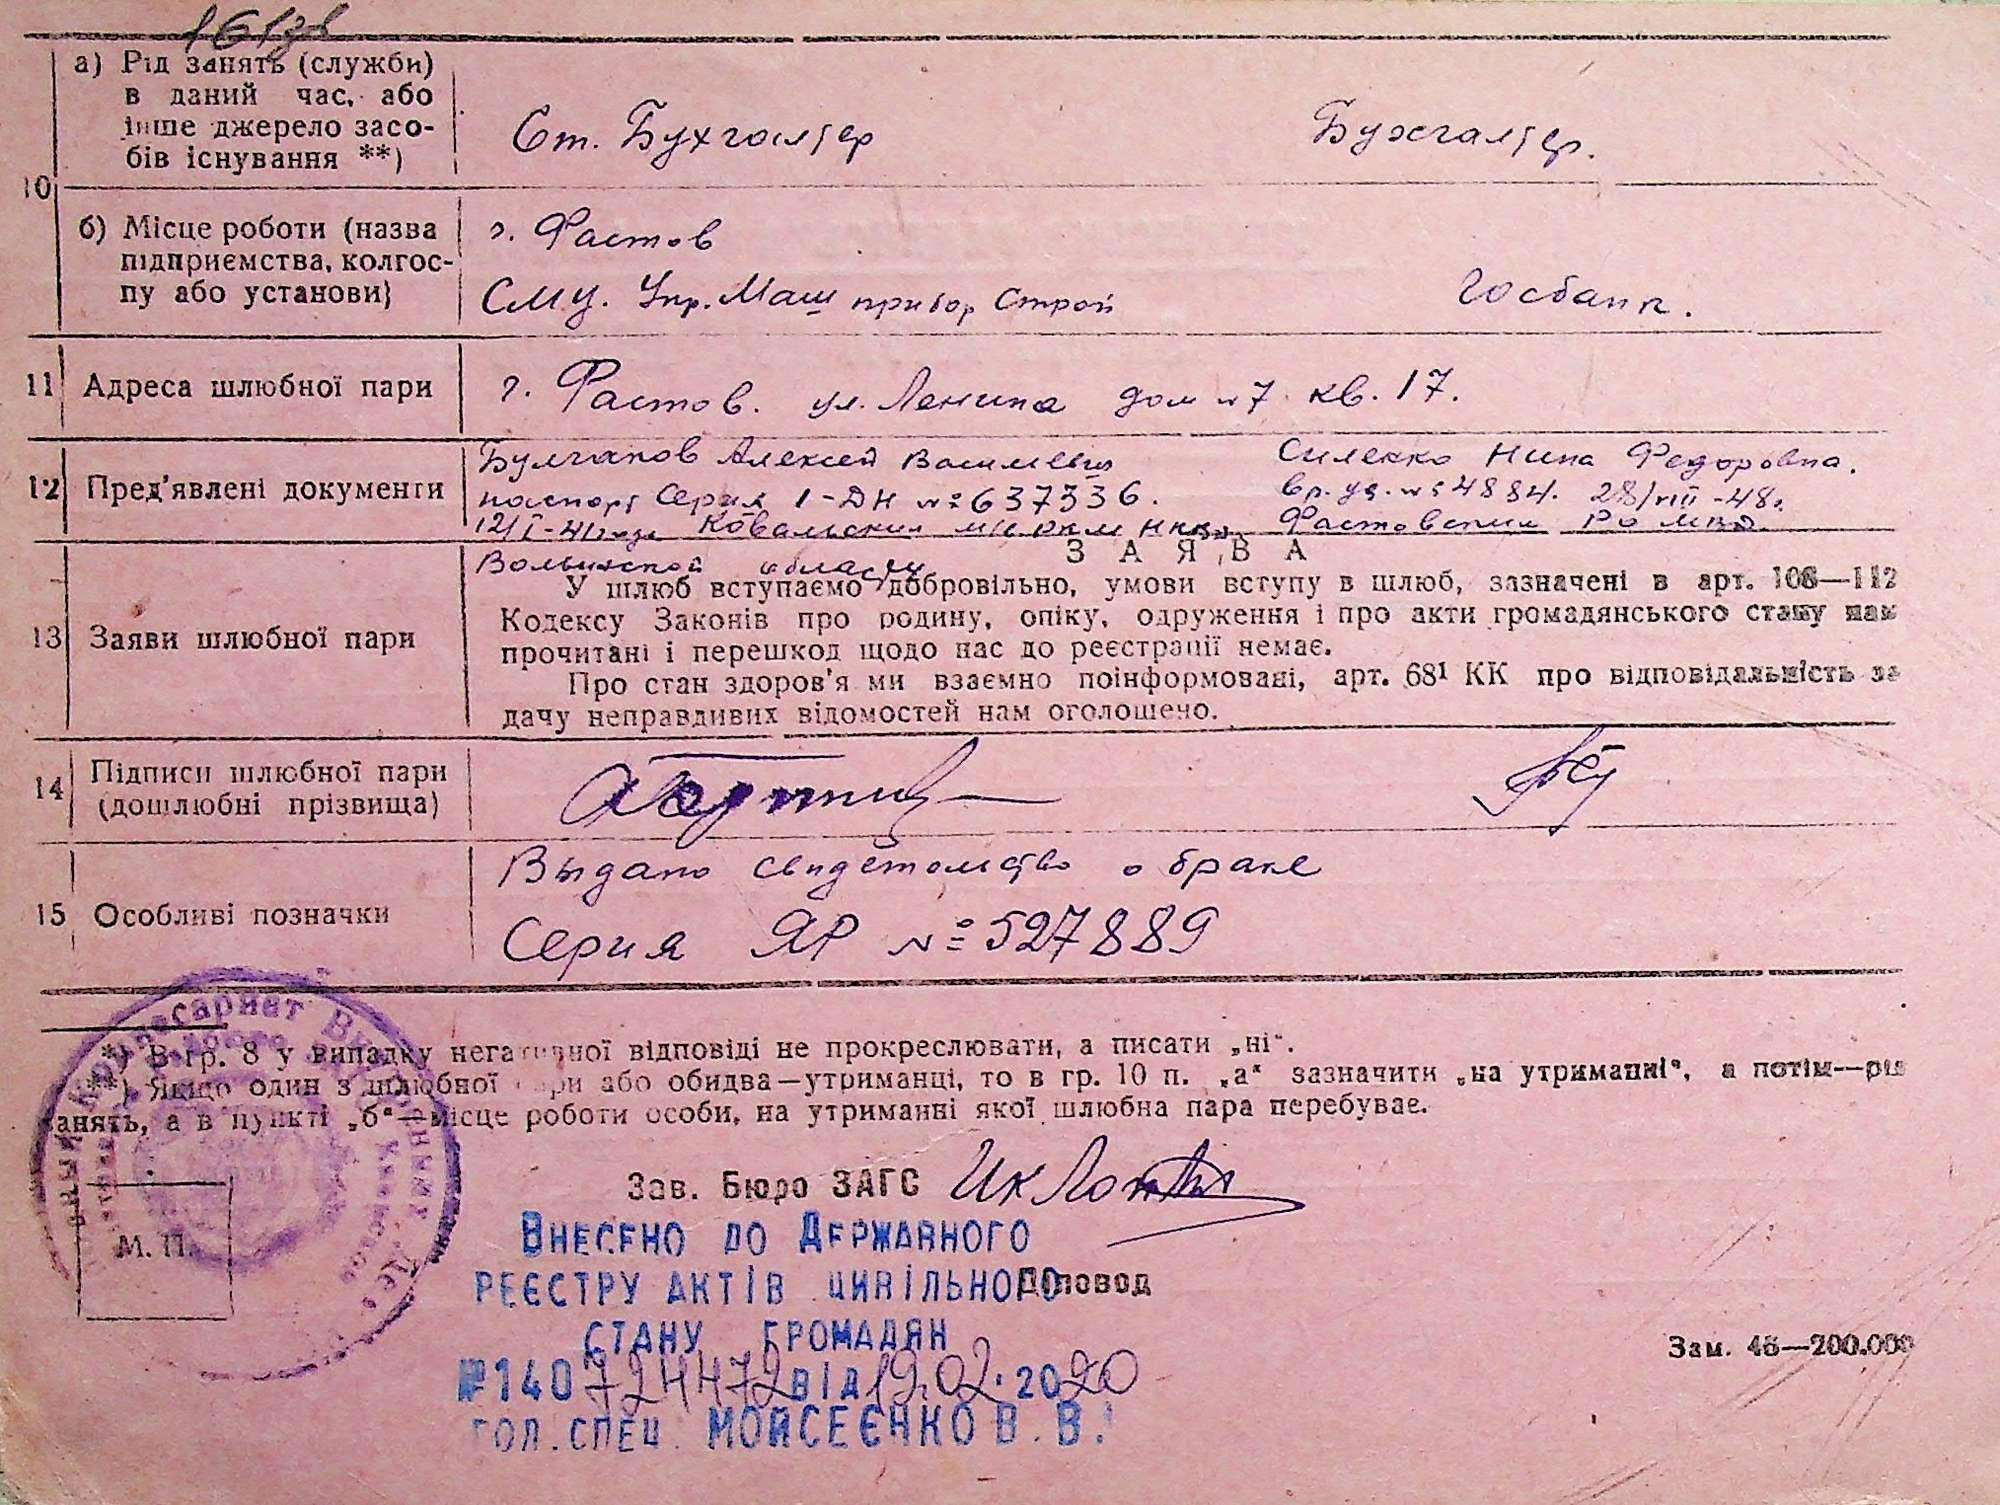 а) Рід занять (служби)
в даний час, або
інше джерело засо-
бів існування **)
Ст. Бухгалтер
Бухгалтер.
10
б) Місце роботи (назва
підприємства, колгос-
пу або установи)
г. Фастов
СМУ. Упр. Маш прибор Строй
Госбанк.
11 Адреса шлюбної пари
г. Фастов. ул. Ленина дом № 7 кв. 17.
12 Пред'явлені документи
Булгаков Алексей Васильевич
паспорт Серия І-ДН № 637336.
12/I-41 года Ковальским РКМ НКВД
Волынской области
Силенко Нина Федоровна.
вр. уд. № 4884. 28/VIII-48г.
Фастовским РО МВД.
13 Заяви шлюбної пари
ЗАЯВА
У шлюб вступаємо добровільно, умови вступу в шлюб, зазначені в арт. 106—112
Кодексу Законів про родину, опіку, одруження і про акти громадянського стану нам
прочитані і перешкод щодо нас до реєстрації немає.
Про стан здоров'я ми взаємно поінформовані, арт. 68¹ КК про відповідальність за
дачу неправдивих відомостей нам оголошено.
14 Підписи шлюбної пари
(дошлюбні прізвища)
15 Особливі позначки
Выдано свидетельство о браке
Серия ЯР № 527889
*) В гр. 8 у випадку негативної відповіді не прокреслювати, а писати „ні".
**) Якщо один з шлюбної пари або обидва—утриманці, то в гр. 10 п. „а" зазначити „на утриманні", а потім—рід
занять, а в пункті „б"—місце роботи особи, на утриманні якої шлюбна пара перебуває.
Зав. Бюро ЗАГС
М. П.
Діловод
Внесено до Державного
реєстру актів цивільного
стану громадян
№ 140724472 від 19.02.2020
гол. спец. Мойсеєнко В. В.
Зам. 46—200.000